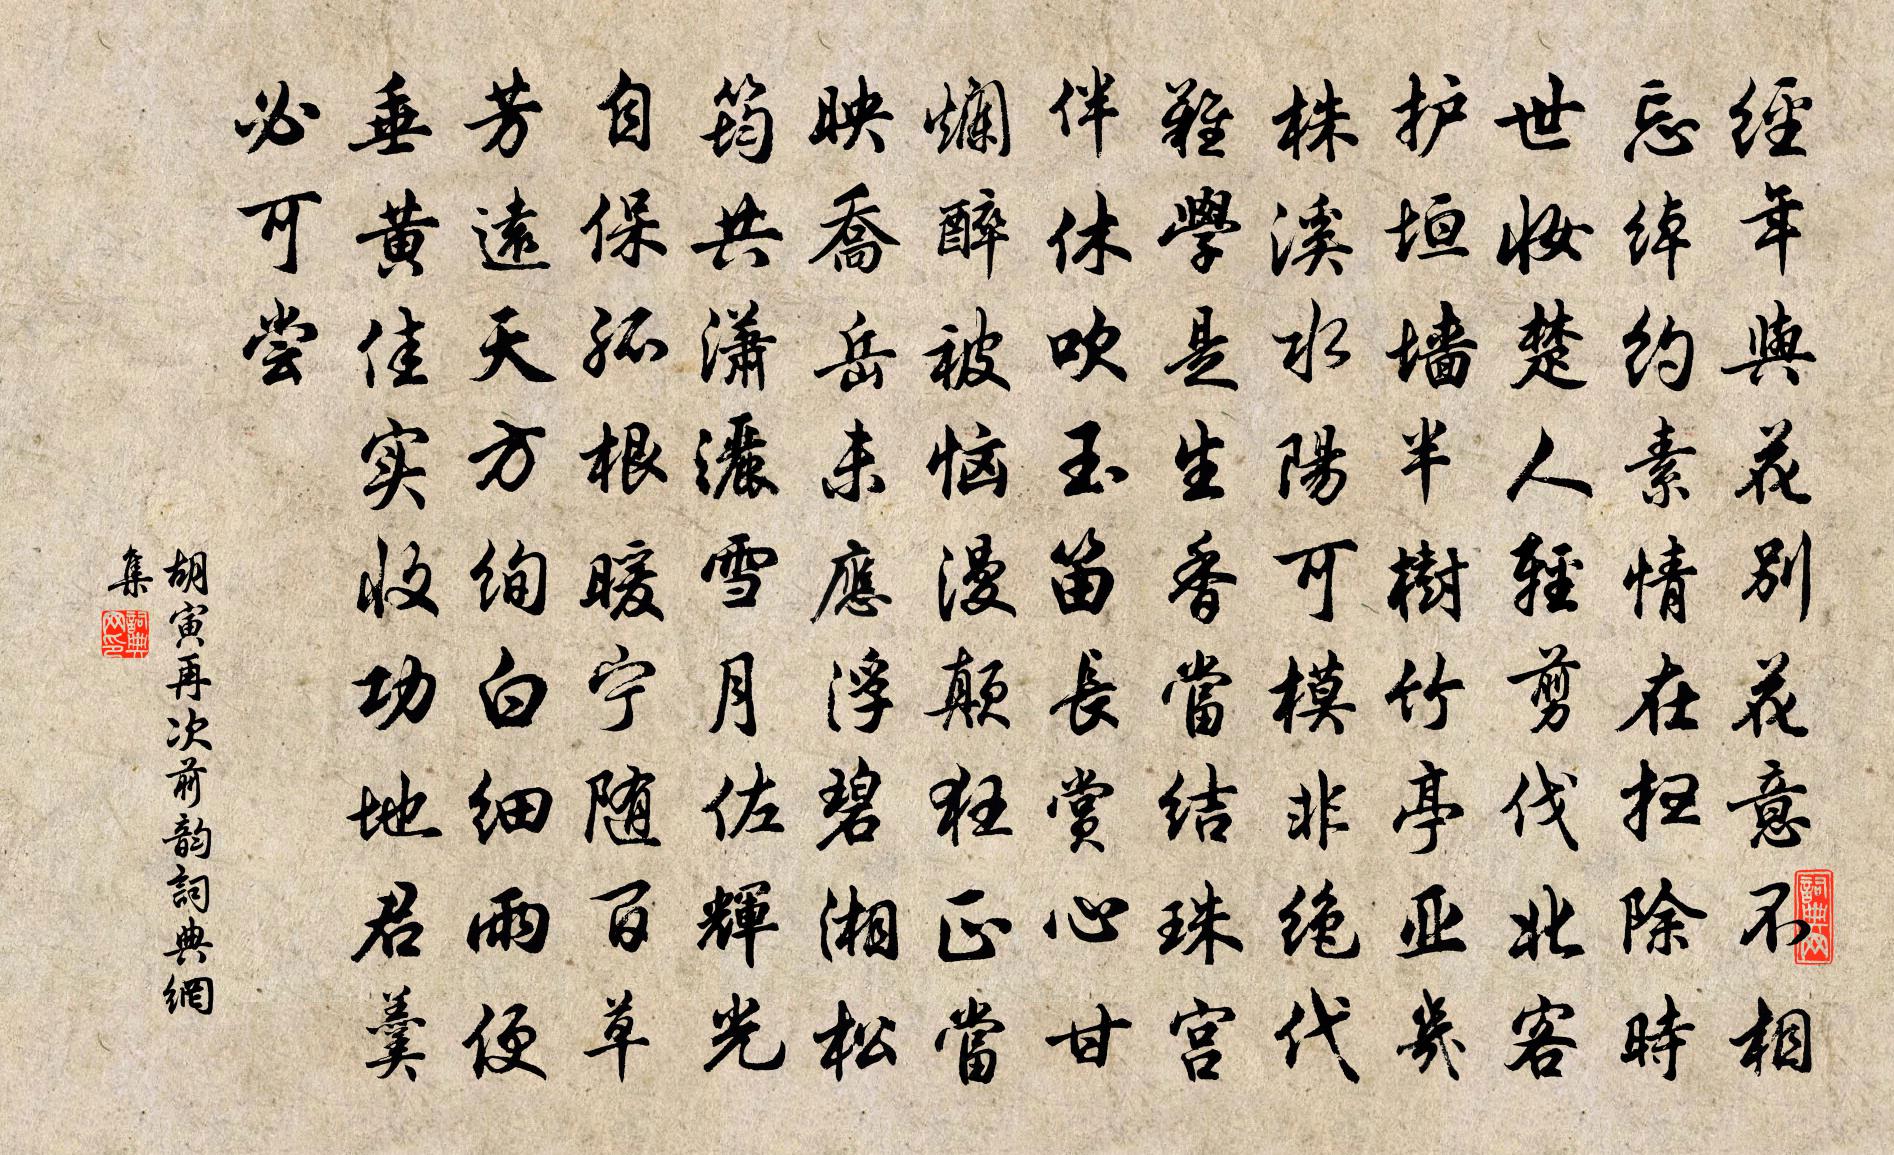 經年與花别花意不相
忘绰约素情在扫除時
世妆楚人輕剪伐北客
护垣墙半樹竹亭亚幾
株溪水陽可模非绝代
難學是生香當结珠宫
伴休吹玉笛長赏心甘
爛醉被恼漫颠狂正當
映喬岳未應浮碧湘松
筠共潇灑雪月佐輝光
自保孤根暖宁随百草
芳遠天方绚白细雨便
垂黄佳实收功地君羹
必可尝
胡寅再次前韵詞典網
集
詞典网印
詞典网